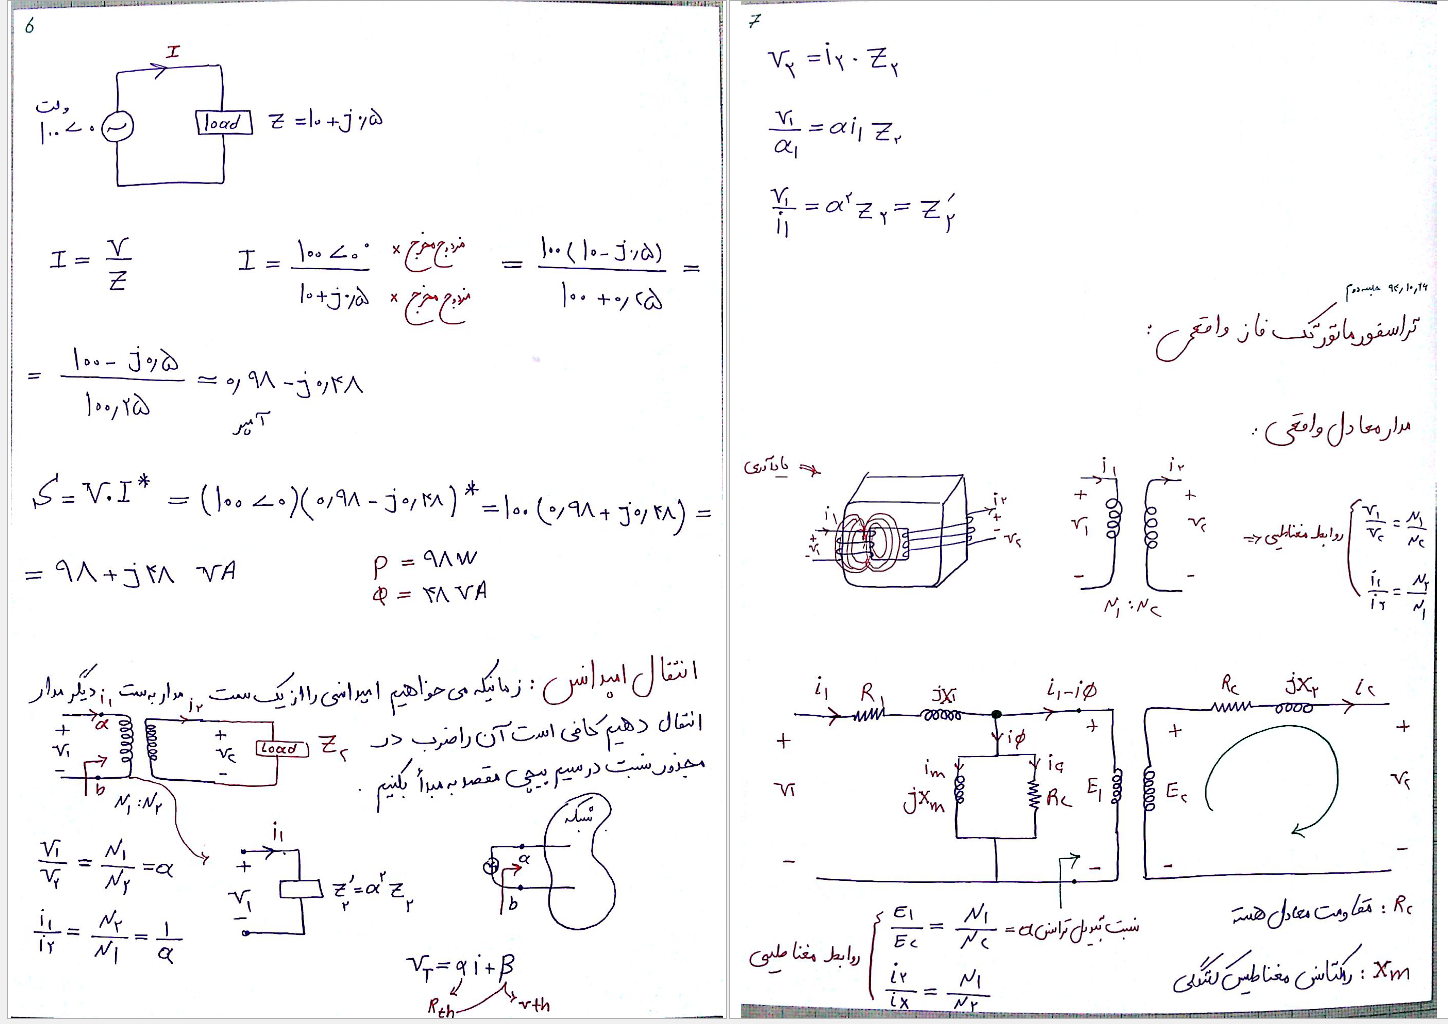 6
I
ولت
۱۰۰<۰
load
Z = ۱۰+j۰٫۵
I = V/Z
I = ۱۰۰<۰°/۱۰+j۰٫۵ × مزدوج مخرج / × مزدوج مخرج = ۱۰۰(۱۰-j۰٫۵)/۱۰۰+۰٫۲۵ =
= ۱۰۰-j۰٫۵/۱۰۰٫۲۵ ≈ ۰٫۹۸-j۰٫۴۸
آمپر
S = V.I* = (۱۰۰<۰)(۰٫۹۸-j۰٫۴۸)* = ۱۰۰(۰٫۹۸+j۰٫۴۸) =
= ۹۸+j۴۸ VA
P = ۹۸W
Q = ۴۸ VA
انتقال امپدانس : زمانیکه می خواهیم امپدانسی را از یک سمت مدار به سمت دیگر مدار
انتقال دهیم کافی است آن را ضرب در
مجذور نسبت در سیم پیچی مقصد به مبدأ بکنیم .
i₁ a i₂
+ V₁ - + V₂ - Load Z₂
b
N₁:N₂
V₁/V₂ = N₁/N₂ = α
i₁/i₂ = N₂/N₁ = 1/α
i₁
+ V₁ -
Z₂′ = α²Z₂
شبکه
a
b
V_T = αi+β
Rth vth
7
V₂ = i₂ . Z₂
V₁/α₁ = αi₁ Z₂
V₁/i₁ = α²Z₂ = Z₂′
جلسه دوم
تراسفورماتور تک فاز واقعی :
مدار معادل واقعی :
یادآوری ⇒
i₁ i₂
+ V₁ - + V₂ -
i₁ i₂
+ V₁ - + V₂ -
N₁ : N₂
روابط مغناطیسی ⇒
V₁/V₂ = N₁/N₂
i₁/i₂ = N₂/N₁
i₁ R₁ jX₁ i₁-iφ R₂ jX₂ i₂
iφ
im ic
+ V₁ - jXm Rc + E₁ - + E₂ - + V₂ -
روابط مغناطیسی
E₁/E₂ = N₁/N₂ = α نسبت تبدیل ترانس
i₂/ix = N₁/N₂
Rc : مقاومت معادل هسته
Xm : راکتانس مغناطیس کنندگی